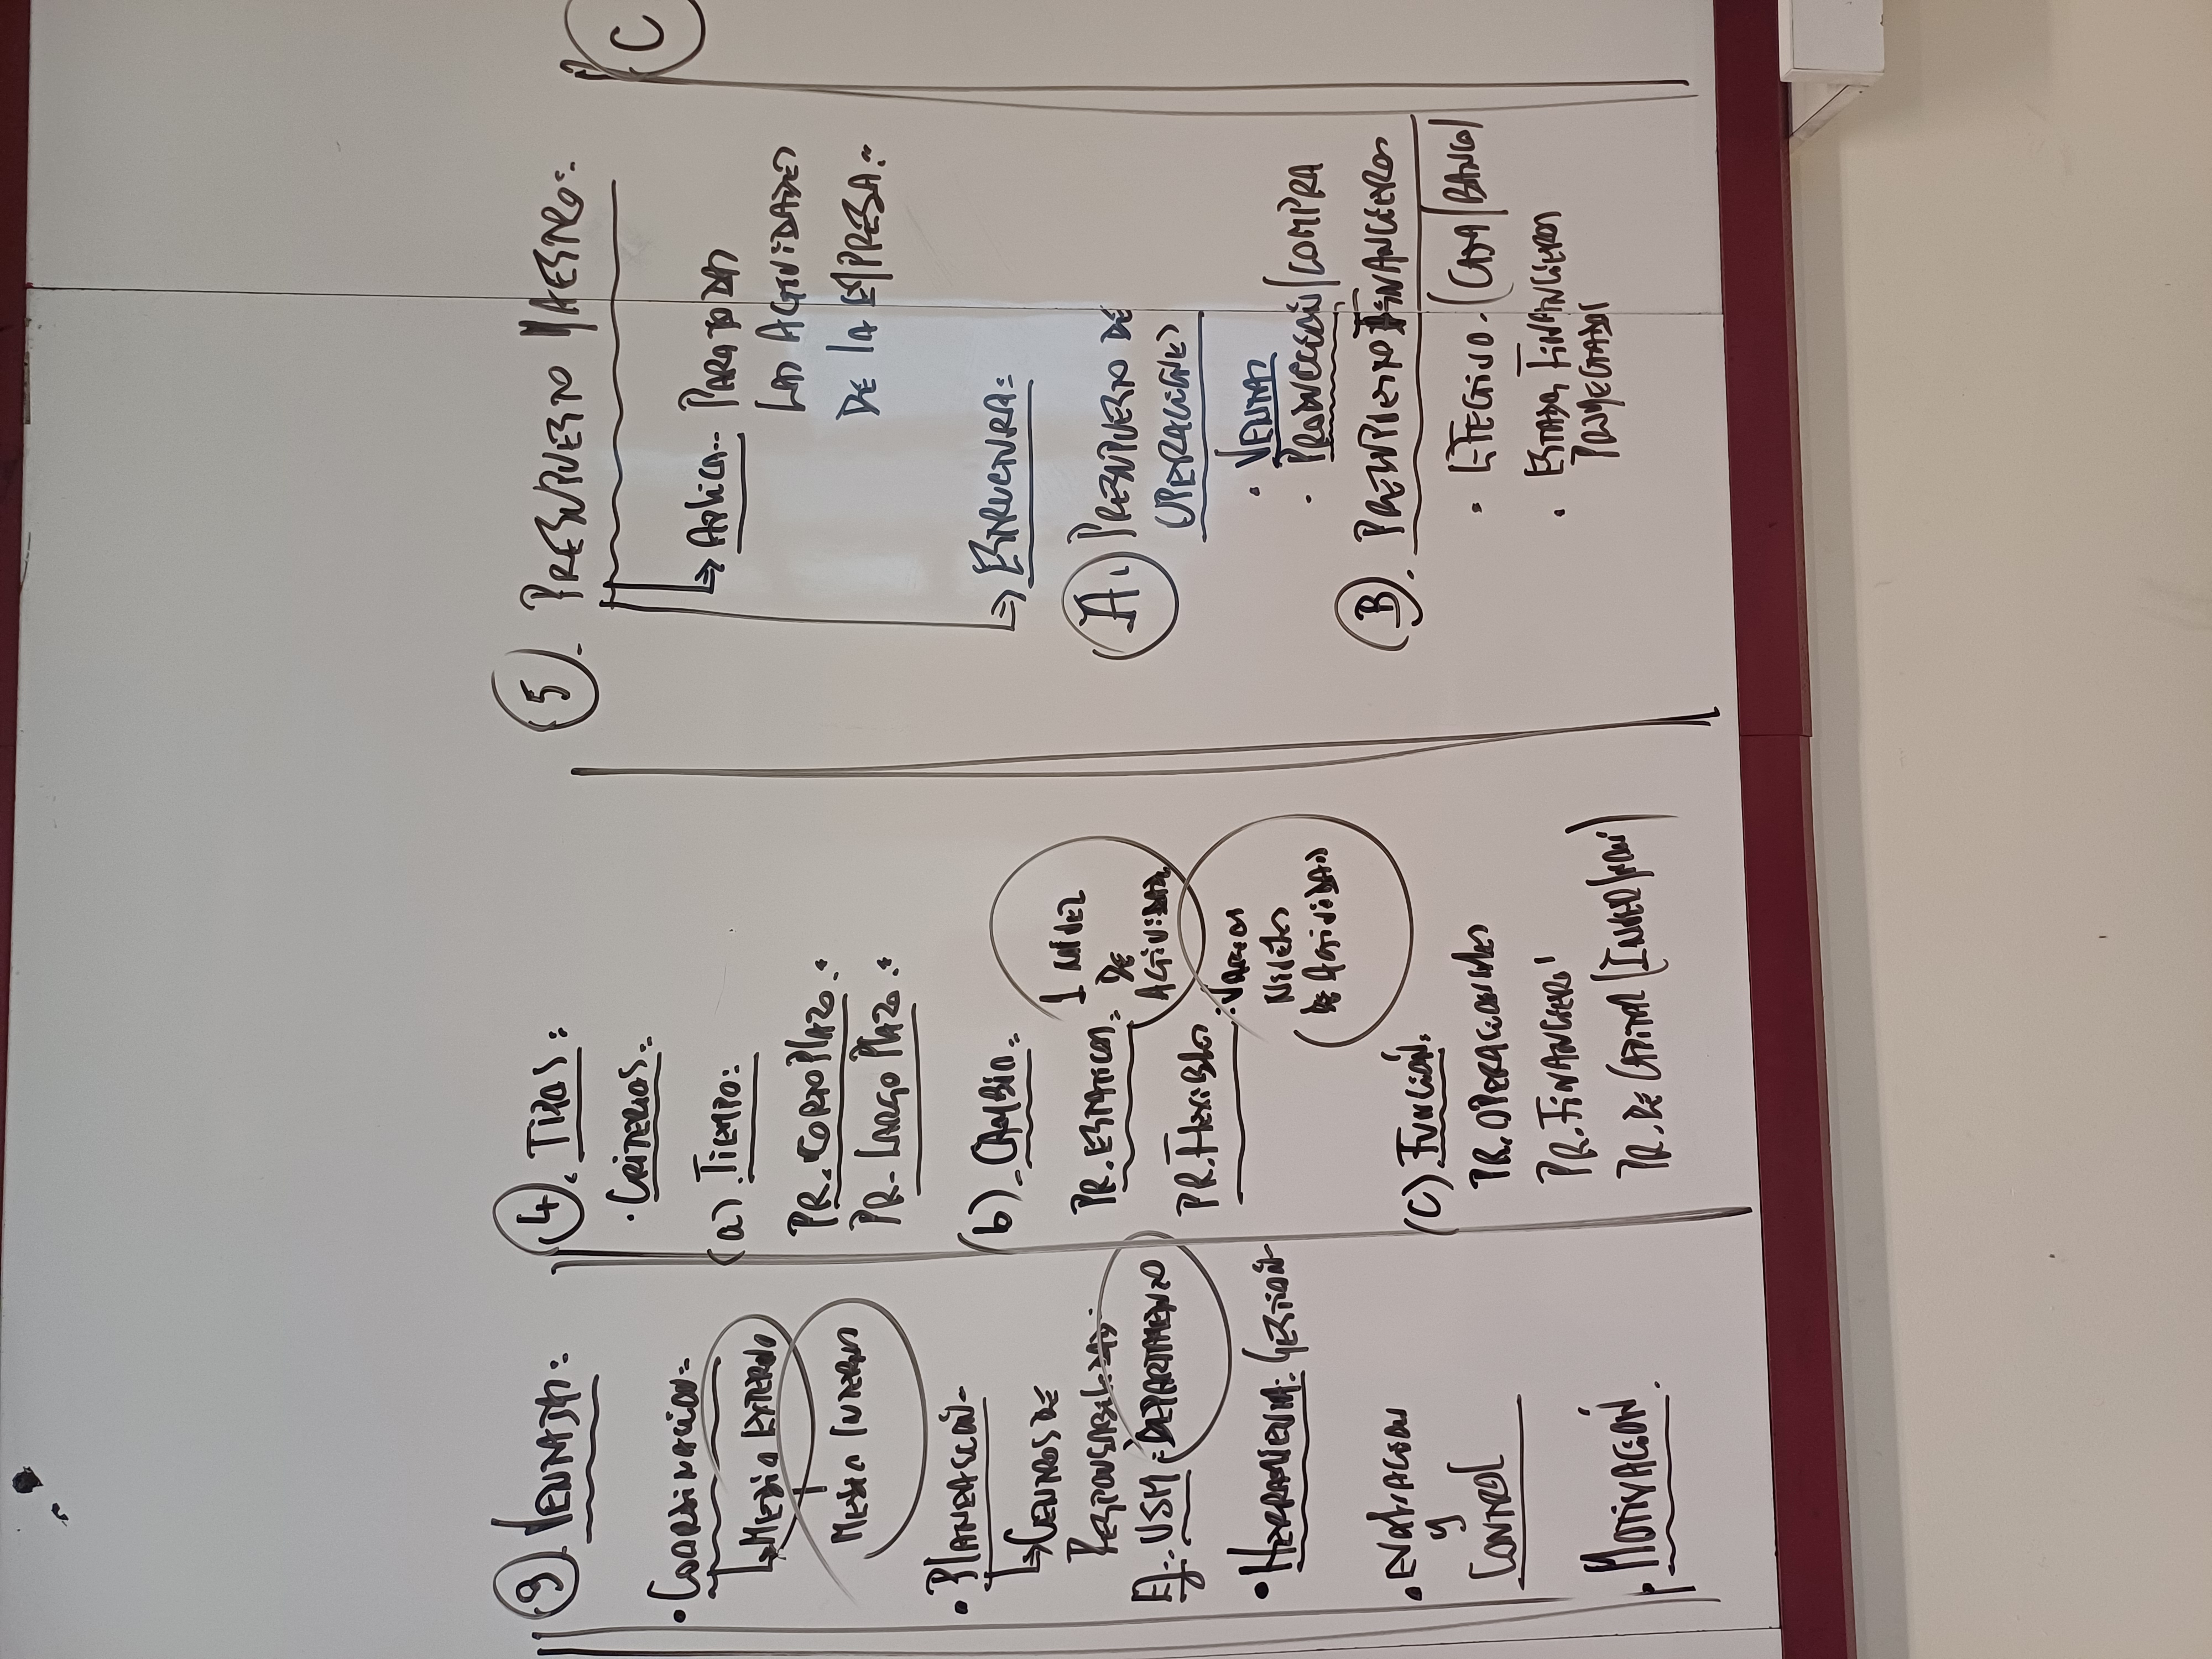 3. VENTAJAS:
• COORDINACIÓN:
MEDIO EXTERNO
MEDIO INTERNO
• PLANEACIÓN
CENTROS DE
RESPONSABILIDAD
Ej: USM: DEPARTAMENTO
• HERRAMIENTA: GESTIÓN
• EVALUACIÓN
Y
CONTROL
• MOTIVACIÓN.
4. TIPOS:
• CRITERIOS:
(a) TIEMPO:
PR. CORTO PLAZO:
PR. LARGO PLAZO:
(b) CAMBIO:
PR. ESTÁTICOS: 1 NIVEL
DE
ACTIVIDAD
PR. FLEXIBLES
: VARIOS
NIVELES
DE ACTIVIDAD
(C) FUNCIÓN:
PR. OPERACIONALES
PR. FINANCIERO
PR. DE CAPITAL
5. PRESUPUESTO MAESTRO:
APLICA: PARA TODAS
LAS ACTIVIDADES
DE LA EMPRESA:
ESTRUCTURA:
A. PRESUPUESTO DE
OPERACIONES
• VENTAS
• PRODUCCIÓN/COMPRA
B. PRESUPUESTO FINANCIEROS
• EFECTIVO. (CAJA/BANCO)
• ESTADOS FINANCIEROS
PROYECTADOS
C